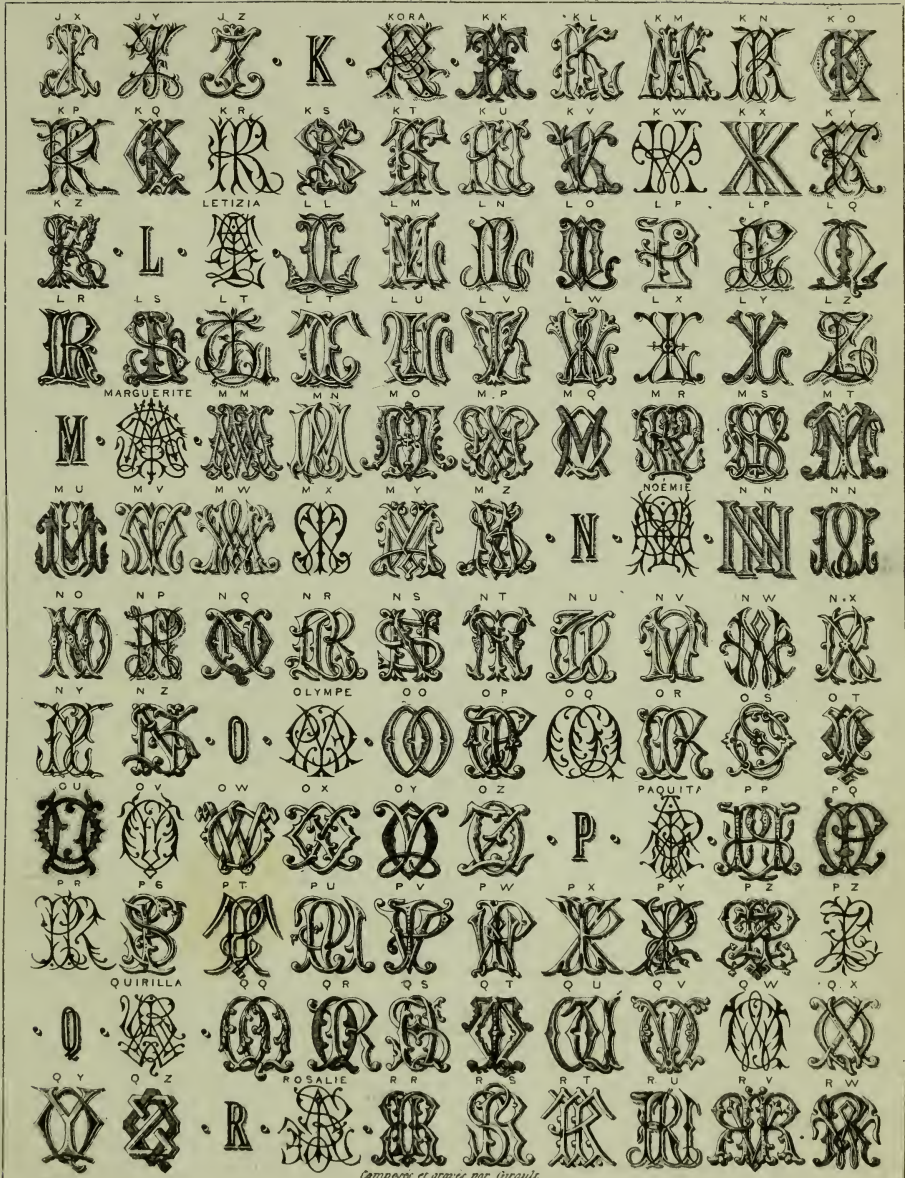 JX JY JZ · K · KORA · KK KL KM KN KO
KP KQ KR KS KT KU KV KW KX KY
KZ · L · LETIZIA · LL LM LN LO LP LP LQ
LR LS LT LT LU LV LW LX LY LZ
M · MARGUERITE · MM MN MO M.P MQ MR MS MT
MU MV MW MX MY MZ · N · NOÉMIE · NN NN
NO NP NQ NR NS NT NU NV NW N.X
NY NZ · O · OLYMPE · OO OP OQ OR OS OT
OU OV OW OX OY OZ · P · PAQUITA · PP PQ
PR PS PT PU PV PW PX PY PZ PZ
· Q · QUIRILLA · QQ QR QS QT QU QV QW Q.X
QY QZ · R · ROSALIE · RR RS RT RU RV RW
Composés et gravés par Girault